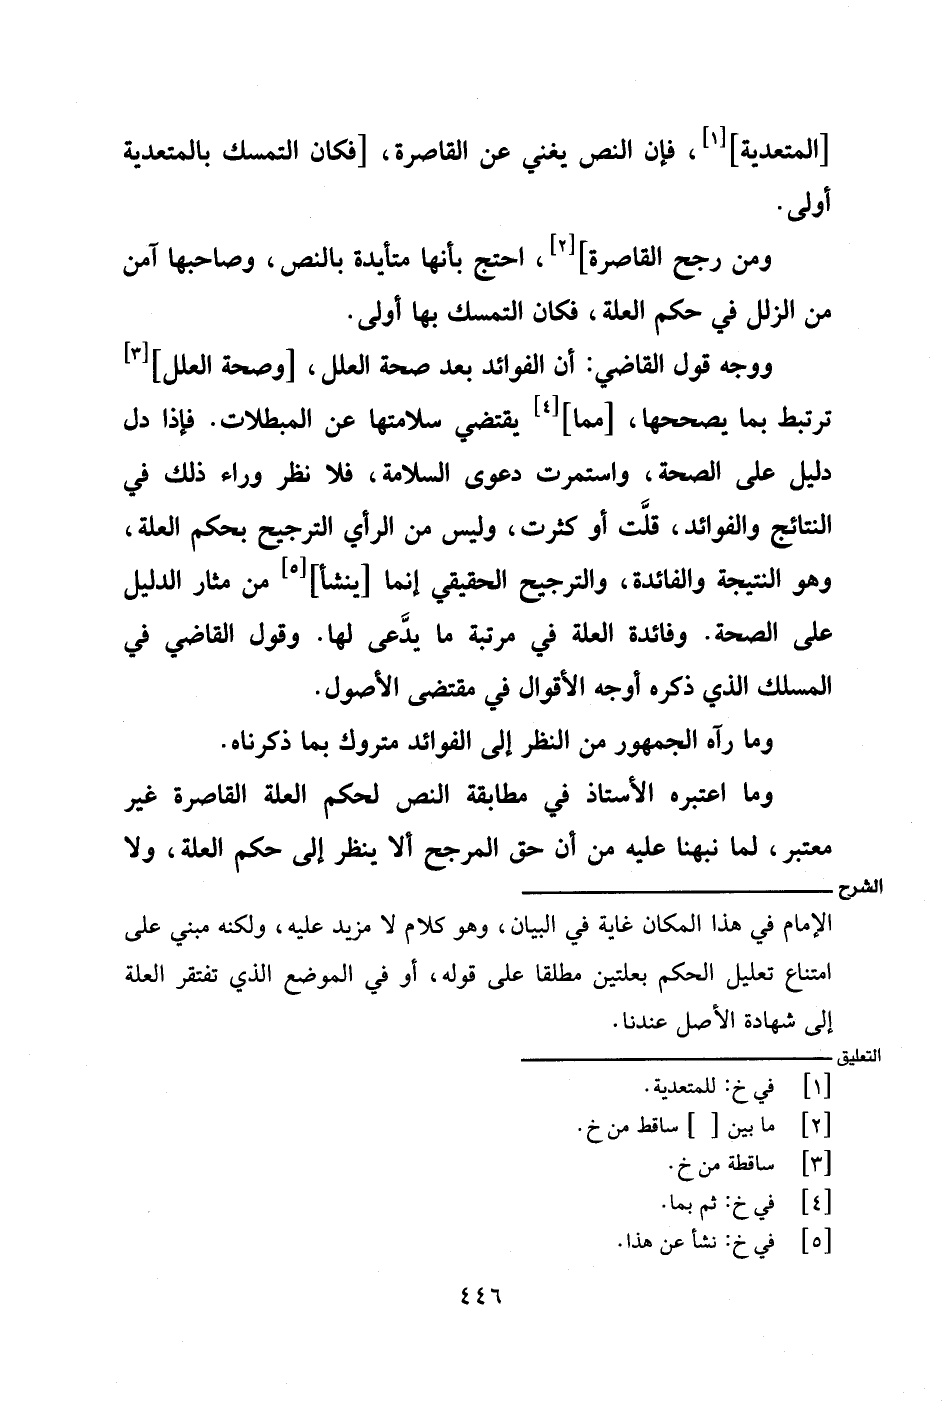 [المتعدية][١]، فإن النص يغني عن القاصرة، [فكان التمسك بالمتعدية
أولى.
ومن رجح القاصرة][٢]، احتج بأنها متأيدة بالنص، وصاحبها آمن
من الزلل في حكم العلة، فكان التمسك بها أولى.
ووجه قول القاضي: أن الفوائد بعد صحة العلل، [وصحة العلل][٣]
ترتبط بما يصححها، [مما][٤] يقتضي سلامتها عن المبطلات. فإذا دل
دليل على الصحة، واستمرت دعوى السلامة، فلا نظر وراء ذلك في
النتائج والفوائد، قلَّت أو كثرت، وليس من الرأي الترجيح بحكم العلة،
وهو النتيجة والفائدة، والترجيح الحقيقي إنما [ينشأ][٥] من مثار الدليل
على الصحة. وفائدة العلة في مرتبة ما يدَّعى لها. وقول القاضي في
المسلك الذي ذكره أوجه الأقوال في مقتضى الأصول.
وما رآه الجمهور من النظر إلى الفوائد متروك بما ذكرناه.
وما اعتبره الأستاذ في مطابقة النص لحكم العلة القاصرة غير
معتبر، لما نبهنا عليه من أن حق المرجح ألا ينظر إلى حكم العلة، ولا
الشرح
الإمام في هذا المكان غاية في البيان، وهو كلام لا مزيد عليه، ولكنه مبني على
امتناع تعليل الحكم بعلتين مطلقا على قوله، أو في الموضع الذي تفتقر العلة
إلى شهادة الأصل عندنا.
التعليق
[١] في خ: للمتعدية.
[٢] ما بين [ ] ساقط من خ.
[٣] ساقطة من خ.
[٤] في خ: ثم بما.
[٥] في خ: نشأ عن هذا.
٤٤٦